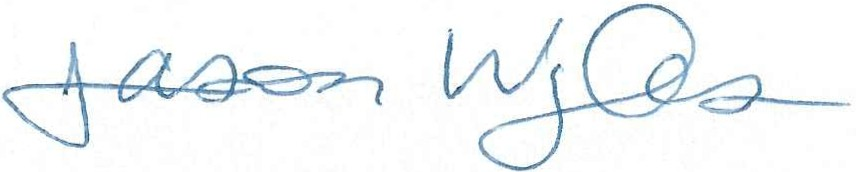 Jason Wyles